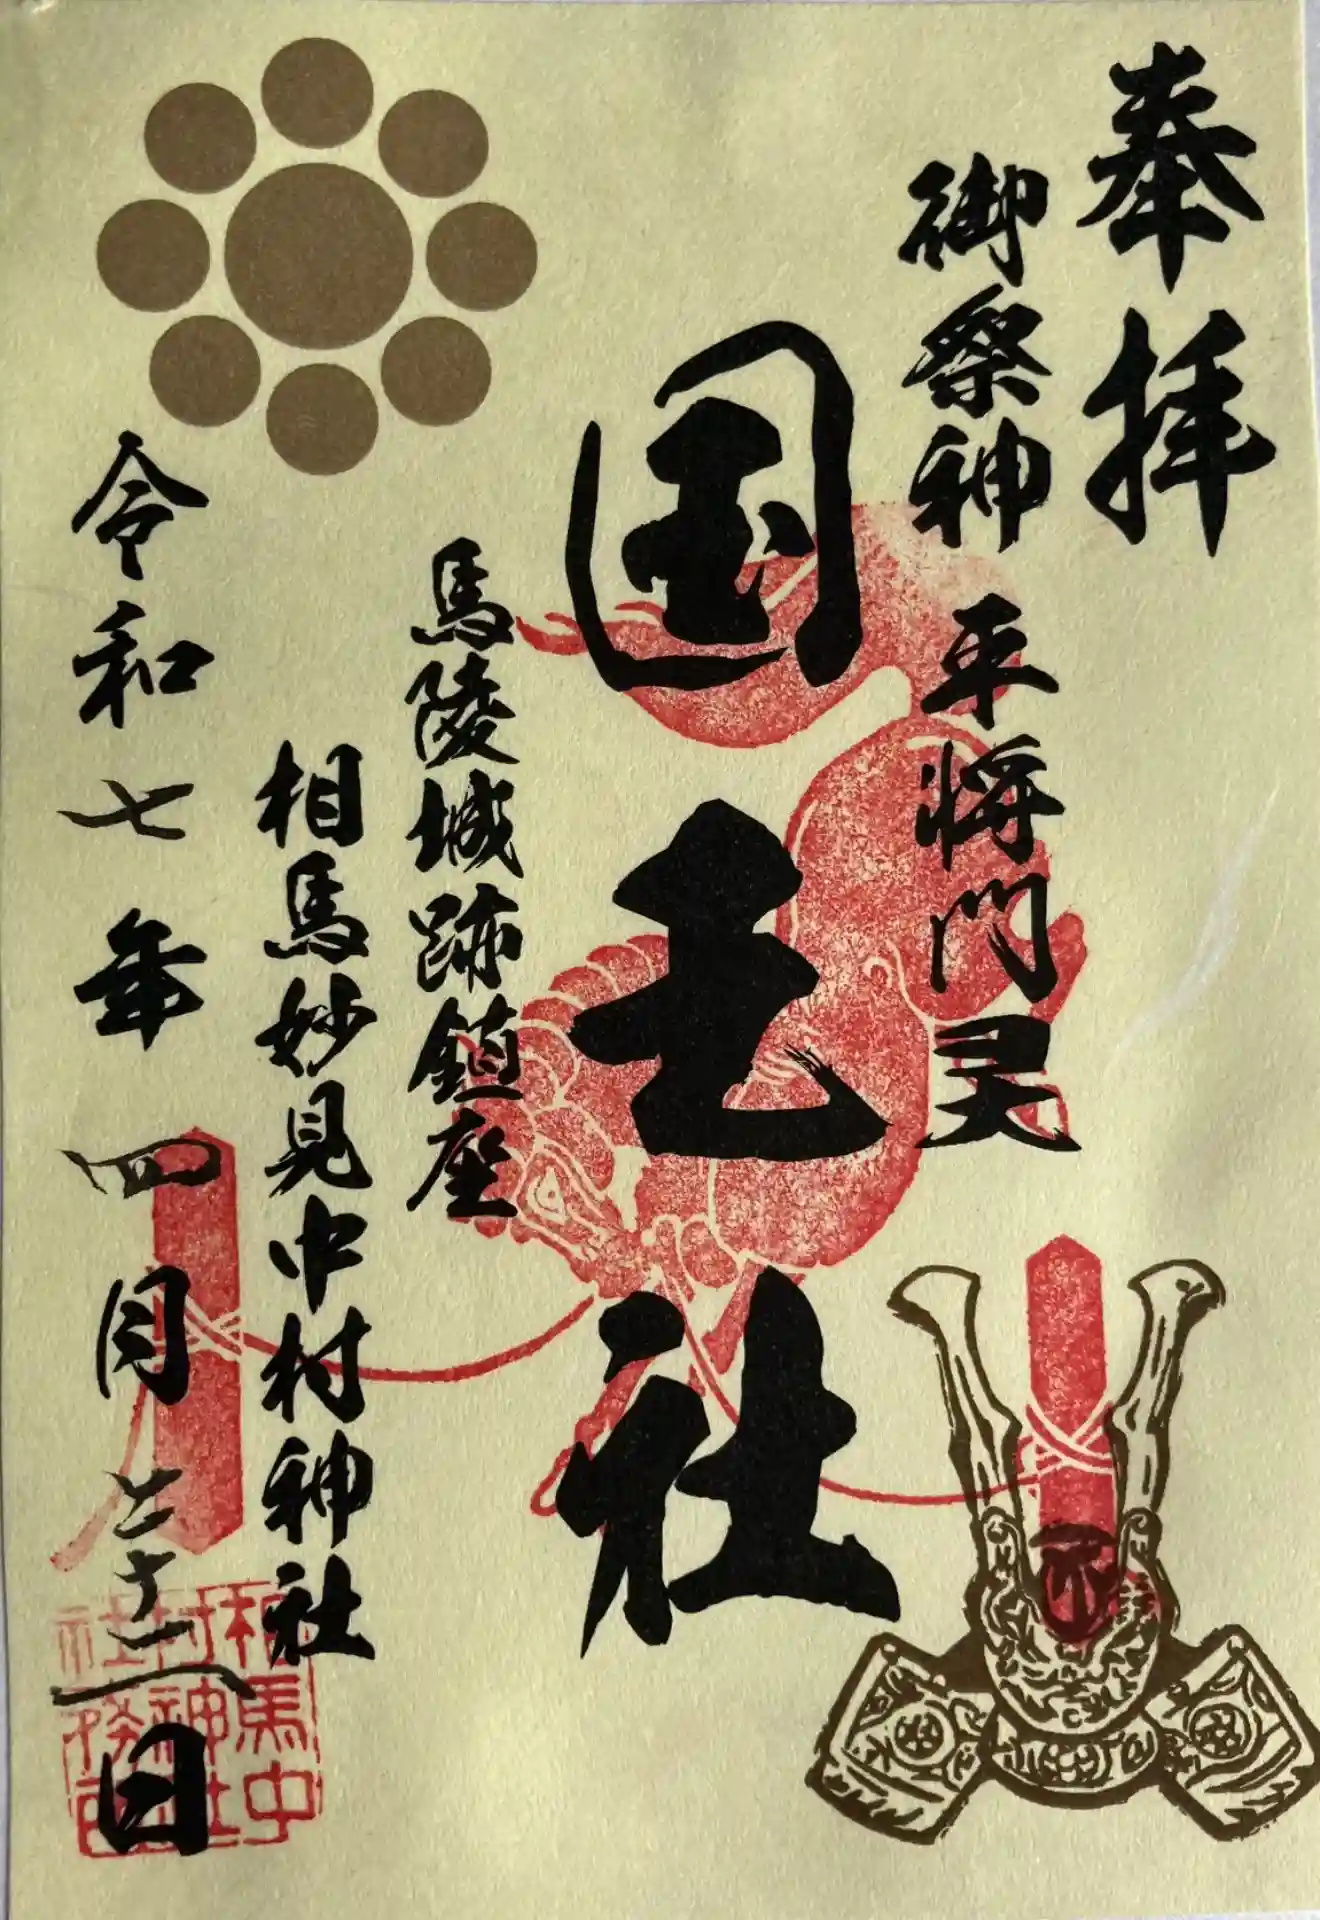 奉拝
御祭神 平将門灵
国王社
馬陵城跡鎮座
相馬妙見中村神社
令和七年四月二十二日
相馬中
村神社
社務所